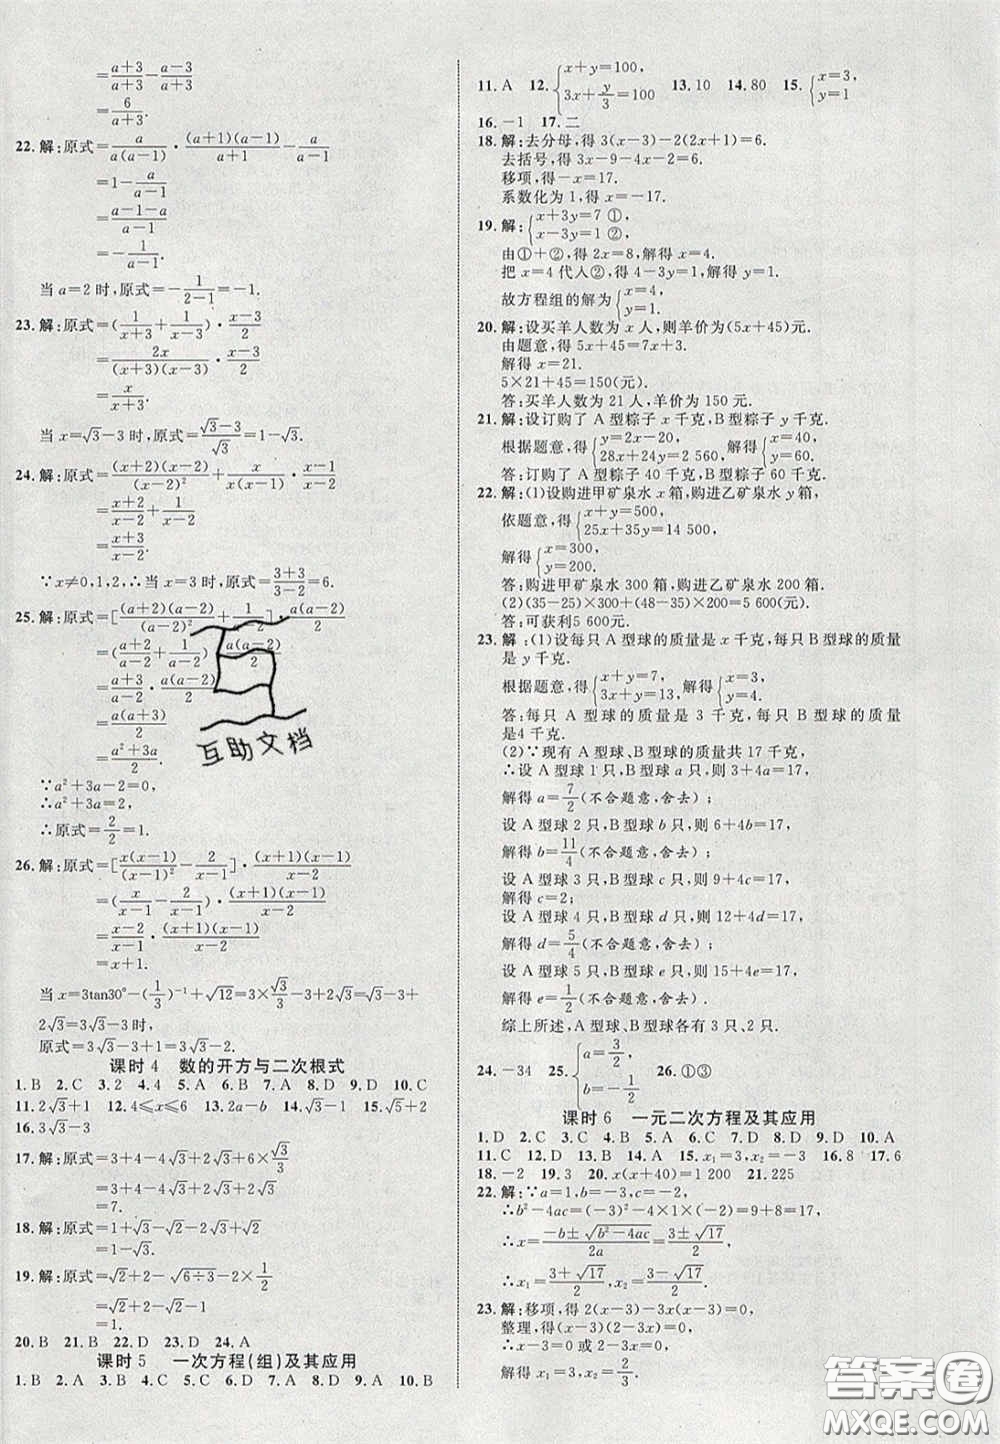 =\frac{a+3}{a+3}-\frac{a-3}{a+3}
=\frac{6}{a+3}.
22. 解:原式=\frac{a}{a(a-1)}·\frac{(a+1)(a-1)}{a+1}-\frac{a}{a-1}
=1-\frac{a}{a-1}
=\frac{a-1-a}{a-1}
=-\frac{1}{a-1}.
当 a=2 时,原式=-\frac{1}{2-1}=-1.
23. 解:原式=(\frac{1}{x+3}+\frac{1}{x-3})·\frac{x-3}{2}
=\frac{2x}{(x+3)(x-3)}·\frac{x-3}{2}
=\frac{x}{x+3}.
当 x=√3-3 时,原式=\frac{√3-3}{√3}=1-√3.
24. 解:原式=\frac{(x+2)(x-2)}{(x-2)²}+\frac{x}{x(x-1)}·\frac{x-1}{x-2}
=\frac{x+2}{x-2}+\frac{1}{x-2}
=\frac{x+3}{x-2}.
∵x≠0,1,2,∴当 x=3 时,原式=\frac{3+3}{3-2}=6.
25. 解:原式=[\frac{(a+2)(a-2)}{(a-2)²}+\frac{1}{a-2}]·\frac{a(a-2)}{2}
=(\frac{a+2}{a-2}+\frac{1}{a-2})·\frac{a(a-2)}{2}
=\frac{a+3}{a-2}·\frac{a(a-2)}{2}
=\frac{a(a+3)}{2}
=\frac{a²+3a}{2}.
∵a²+3a-2=0,
∴a²+3a=2,
∴原式=\frac{2}{2}=1.
26. 解:原式=[\frac{x(x-1)}{(x-1)²}-\frac{2}{x-1}]·\frac{(x+1)(x-1)}{x-2}
=(\frac{x}{x-1}-\frac{2}{x-1})·\frac{(x+1)(x-1)}{x-2}
=\frac{x-2}{x-1}·\frac{(x+1)(x-1)}{x-2}
=x+1.
当 x=3tan30°-(\frac{1}{3})⁻¹+√12=3×\frac{√3}{3}-3+2√3=√3-3+
2√3=3√3-3 时,
原式=3√3-3+1=3√3-2.
课时 4 数的开方与二次根式
1. B 2. C 3. 2 4. 4 5. A 6. B 7. C 8. D 9. D 10. C
11. 2√3+1 12. 4≤x≤6 13. 2a-b 14. √3+1 15. √5+2
16. 3√3-3
17. 解:原式=3+4-4√3+2√3+6×\frac{√3}{3}
=3+4-4√3+2√3+2√3
=7.
18. 解:原式=1+√3-√2-2√3+√2
=1-√3.
19. 解:原式=√2+2-√(6÷3)-2×\frac{1}{2}
=√2+2-√2-1
=1.
20. B 21. B 22. D 23. D 24. A
课时 5 一次方程(组)及其应用
1. B 2. A 3. C 4. B 5. D 6. D 7. D 8. A 9. A 10. B
11. A 12. {x+y=100, 3x+\frac{y}{3}=100 13. 10 14. 80 15. {x=3, y=1
16. -1 17. 二
18. 解:去分母,得 3(x-3)-2(2x+1)=6.
去括号,得 3x-9-4x-2=6.
移项,得-x=17.
系数化为 1,得 x=-17.
19. 解:{x+3y=7 ①, x-3y=1 ②,
由①+②,得 2x=8,解得 x=4.
把 x=4 代人②,得 4-3y=1,解得 y=1.
故方程组的解为{x=4, y=1.
20. 解:设买羊人数为 x 人,则羊价为(5x+45)元.
由题意,得 5x+45=7x+3.
解得 x=21.
5×21+45=150(元).
答:买羊人数为 21 人,羊价为 150 元.
21. 解:设订购了 A 型粽子 x 千克,B 型粽子 y 千克.
根据题意,得{y=2x-20, 28x+24y=2 560, 解得{x=40, y=60.
答:订购了 A 型粽子 40 千克,B 型粽子 60 千克.
22. 解:(1)设购进甲矿泉水 x 箱,购进乙矿泉水 y 箱,
依题意,得{x+y=500, 25x+35y=14 500,
解得{x=300, y=200.
答:购进甲矿泉水 300 箱,购进乙矿泉水 200 箱.
(2)(35-25)×300+(48-35)×200=5 600(元).
答:可获利5 600元.
23. 解:(1)设每只 A 型球的质量是 x 千克,每只 B 型球的质量
是 y 千克.
根据题意,得{x+y=7, 3x+y=13, 解得{x=3, y=4.
答:每只 A 型球的质量是 3 千克,每只 B 型球的质量
是4 千克.
(2)∵现有 A 型球、B 型球的质量共 17 千克,
∴设 A 型球 1 只,B 型球 a 只,则 3+4a=17,
解得 a=\frac{7}{2}(不合题意,舍去);
设 A 型球 2 只,B 型球 b 只,则 6+4b=17,
解得 b=\frac{11}{4}(不合题意,舍去);
设 A 型球 3 只,B 型球 c 只,则 9+4c=17,
解得 c=2;
设 A 型球 4 只,B 型球 d 只,则 12+4d=17,
解得 d=\frac{5}{4}(不合题意,舍去);
设 A 型球 5 只,B 型球 e 只,则 15+4e=17,
解得 e=\frac{1}{2}(不合题意,舍去);
综上所述,A 型球、B 型球各有 3 只、2 只.
24. -34 25. {a=\frac{3}{2}, b=-\frac{1}{2} 26. ①③
课时 6 一元二次方程及其应用
1. D 2. C 3. B 4. B 5. A 6. C 7. B 8. D 9. D 10. A
11. C 12. D 13. B 14. A 15. x₁=3, x₂=-1 16. 8 17. 6
18. -2 19. 3 20. x(x+40)=1 200 21. 225
22. 解:∵a=1,b=-3,c=-2;
∴b²-4ac=(-3)²-4×1×(-2)=9+8=17,
∴x=\frac{-b±√(b²-4ac)}{2a}=\frac{3±√17}{2},
∴x₁=\frac{3+√17}{2},x₂=\frac{3-√17}{2}.
23. 解:移项,得 2(x-3)-3x(x-3)=0,
整理,得(x-3)(2-3x)=0,
∴x-3=0 或 2-3x=0,
解得 x₁=3,x₂=\frac{2}{3}.
互助文档
答案圈
MXQE.COM